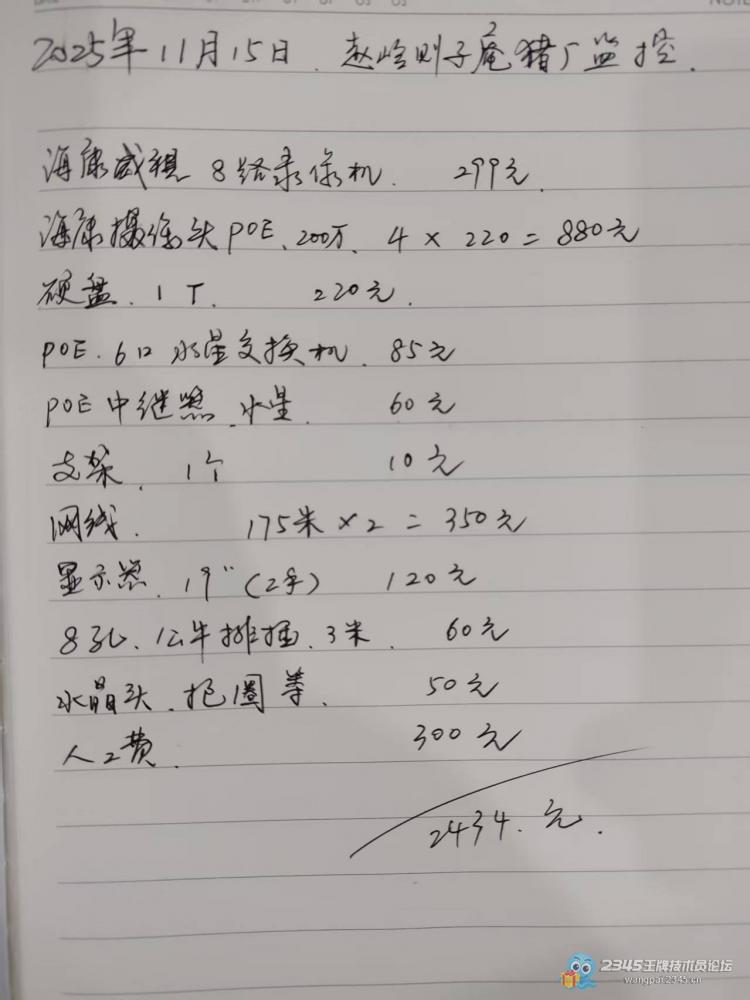 2025年11月15日. 赵峰则子庵猪厂监控.
海康威视 8路录像机. 299元.
海康摄像头POE、200万. 4 × 220 = 880元
硬盘. 1T. 220元.
POE. 6口 水星交换机. 85元
POE中继器. 水星. 60元
支架. 1个 10元
网线. 175米 × 2 = 350元
显示器. 19"(2手) 120元
8孔. 公牛排插. 3米. 60元
水晶头. 抱圈等. 50元
人工费. 300元
2434. 元.
2345王牌技术员论坛
wangpai.2345.cn